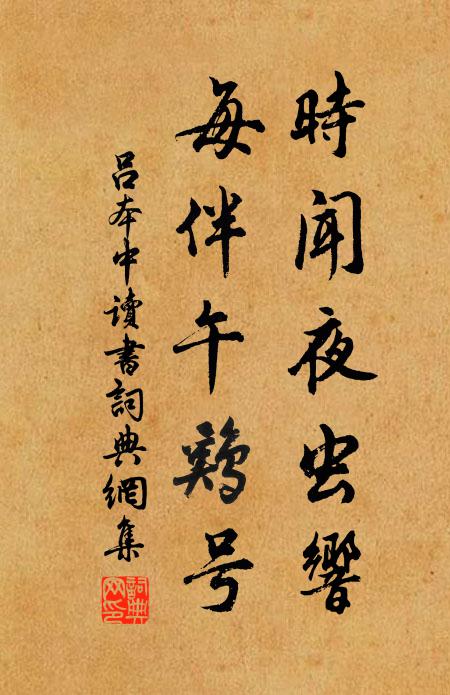 時聞夜虫響
每伴午鷄号
吕本中讀書詞典網集
詞典网印